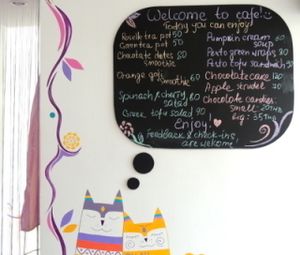 Welcome to cafe!
Today you can enjoy!
tea pot 50
Green tea pot 50
Chocolate dates 50
smoothie
Orange goji
smoothie 60
Spinach & cherry 80
salad
Greek tofu salad 90
Pumpkin cream 60
soup
Pesto green wraps 70
Pesto tofu sandwich 50
Chocolate cake 120
Apple strudel 70
Chocolate candies:
small 20
big 35
Enjoy!
Feedback & check-ins
are welcome!